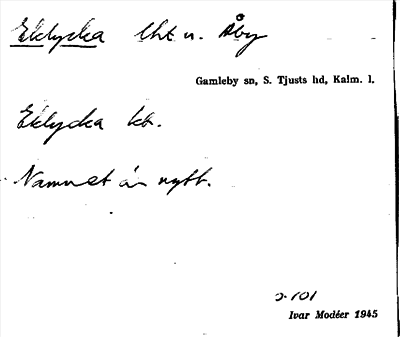 Eklycka lht u. Åby
Gamleby sn, S. Tjusts hd, Kalm. l.
Eklycka kt.
Namnet är nytt.
101
Ivar Modéer 1945